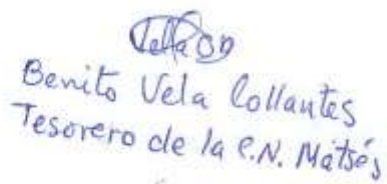 Benito Vela Collantes
Tesorero de la C.N. Matsés